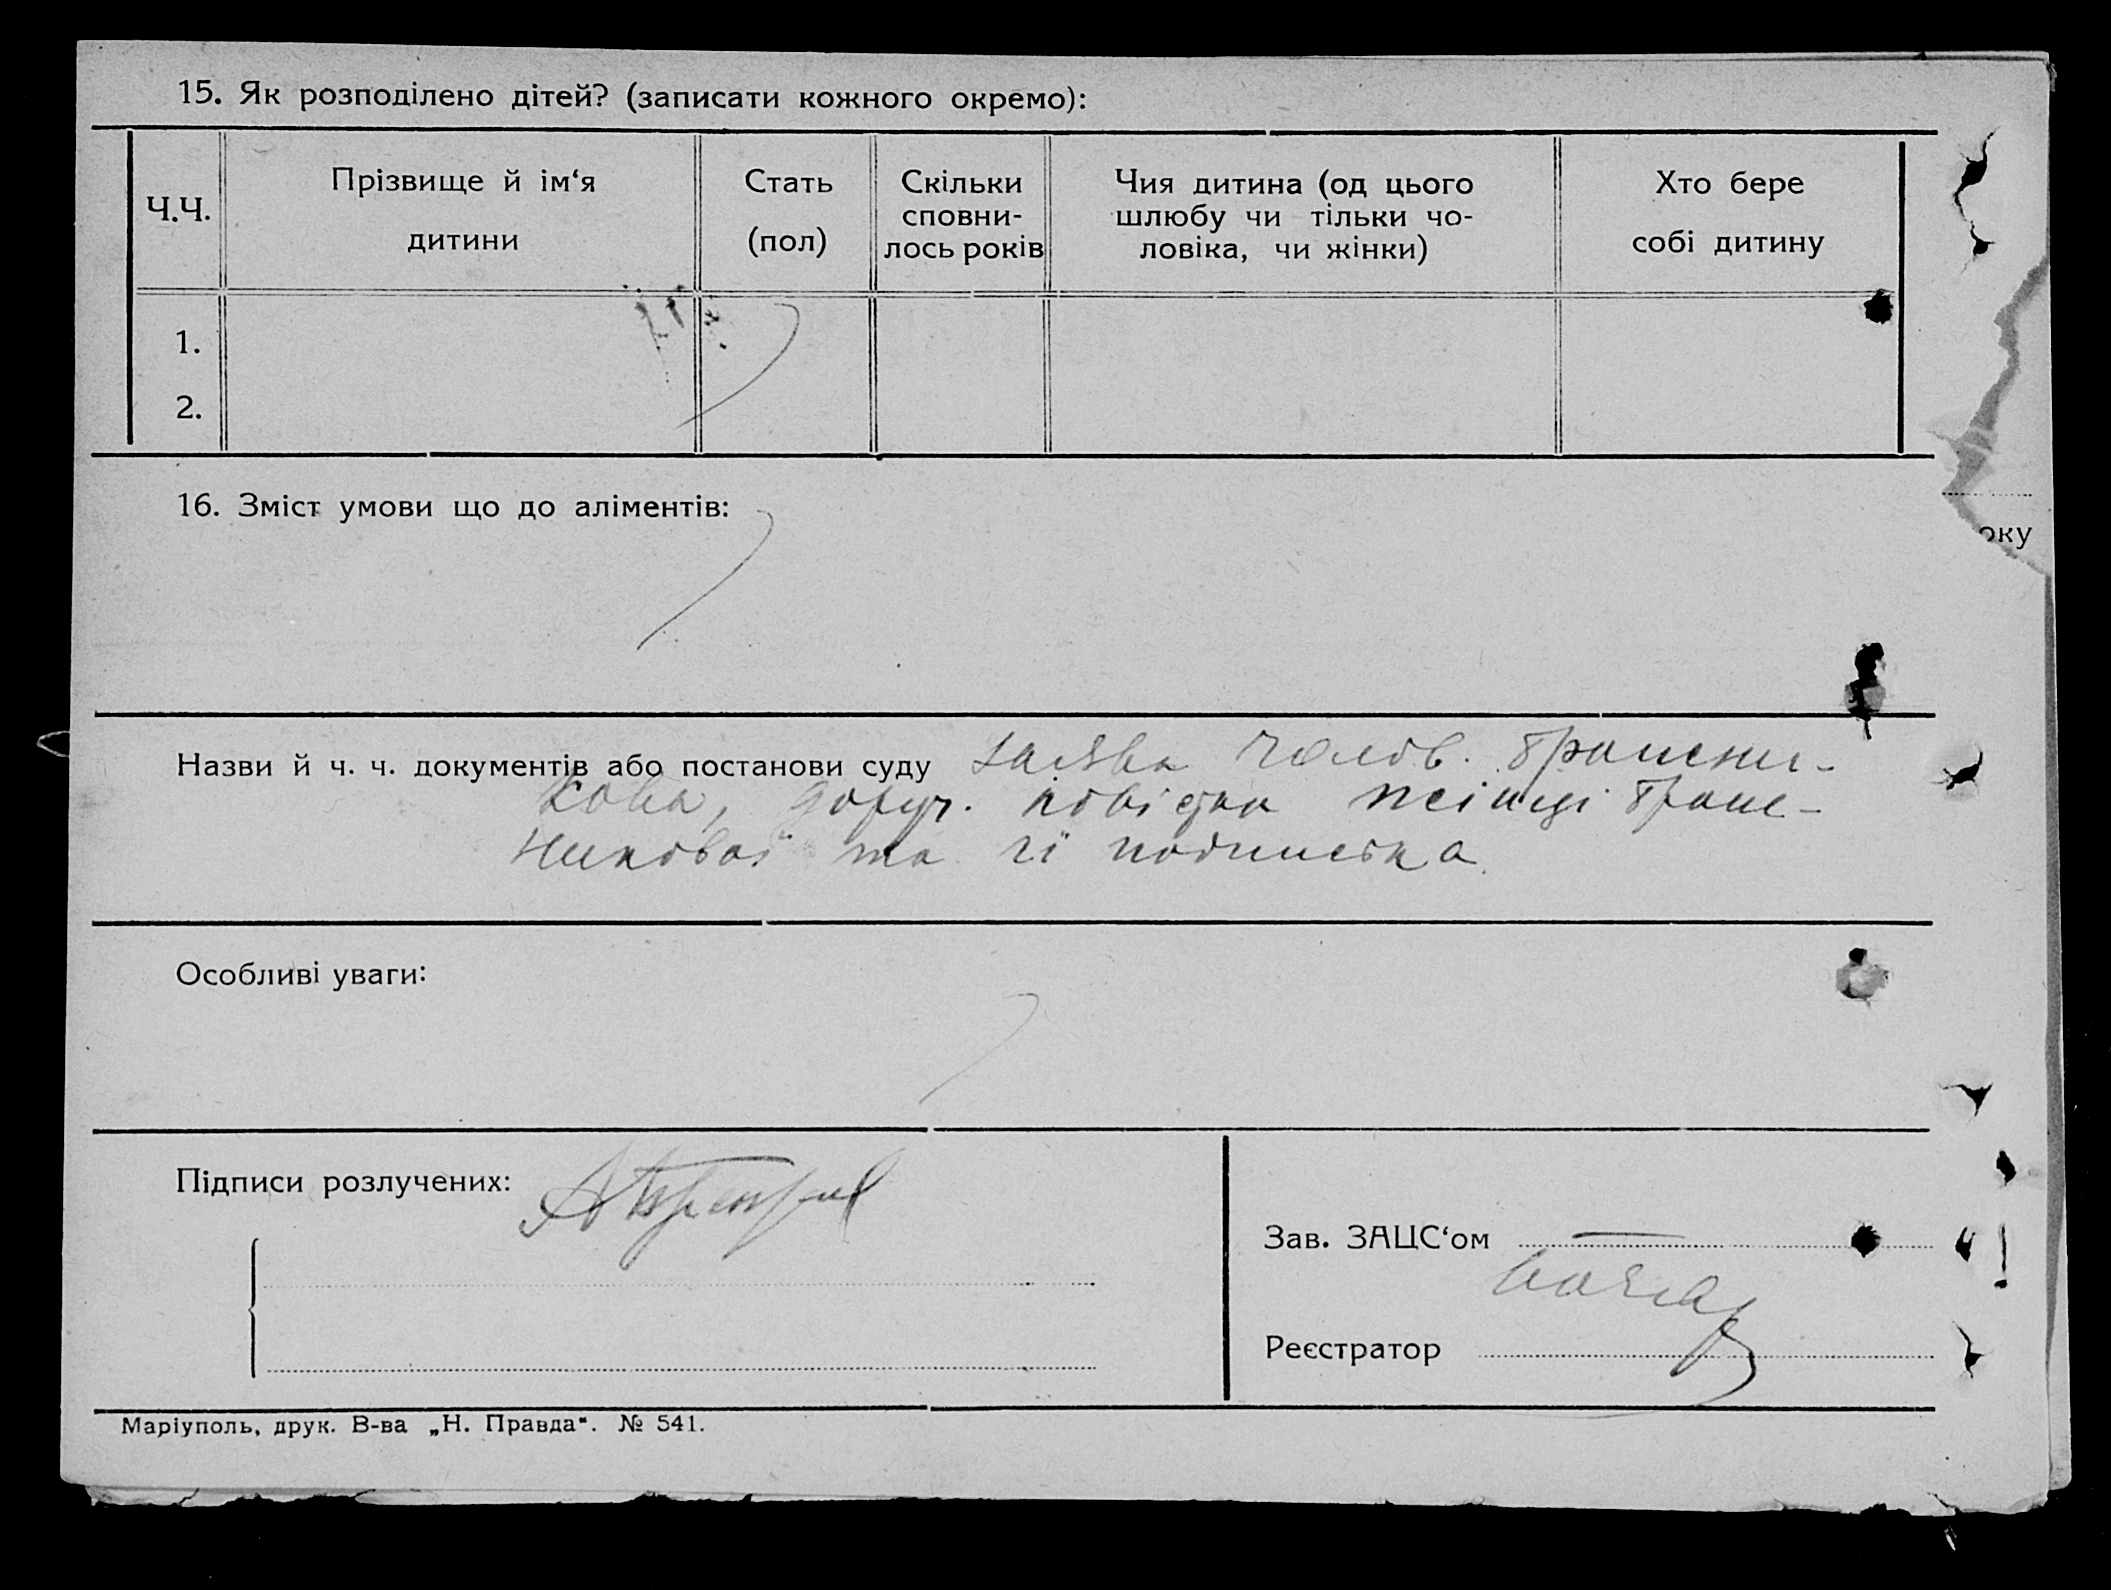 15. Як розподілено дітей? (записати кожного окремо):
Ч.Ч.
Прізвище й ім‘я
дитини
Стать
(пол)
Скільки
сповни-
лось років
Чия дитина (од цього
шлюбу чи тільки чо-
ловіка, чи жінки)
Хто бере
собі дитину
1.
2.
16. Зміст умови що до аліментів:
оку
Назви й ч. ч. документів або постанови суду заява чолов.
кова, доруч. повістка жінці
та її подписка
Особливі уваги:
Підписи розлучених:
Зав. ЗАЦС‘ом
Реєстратор
Маріуполь, друк. В-ва „Н. Правда“. № 541.